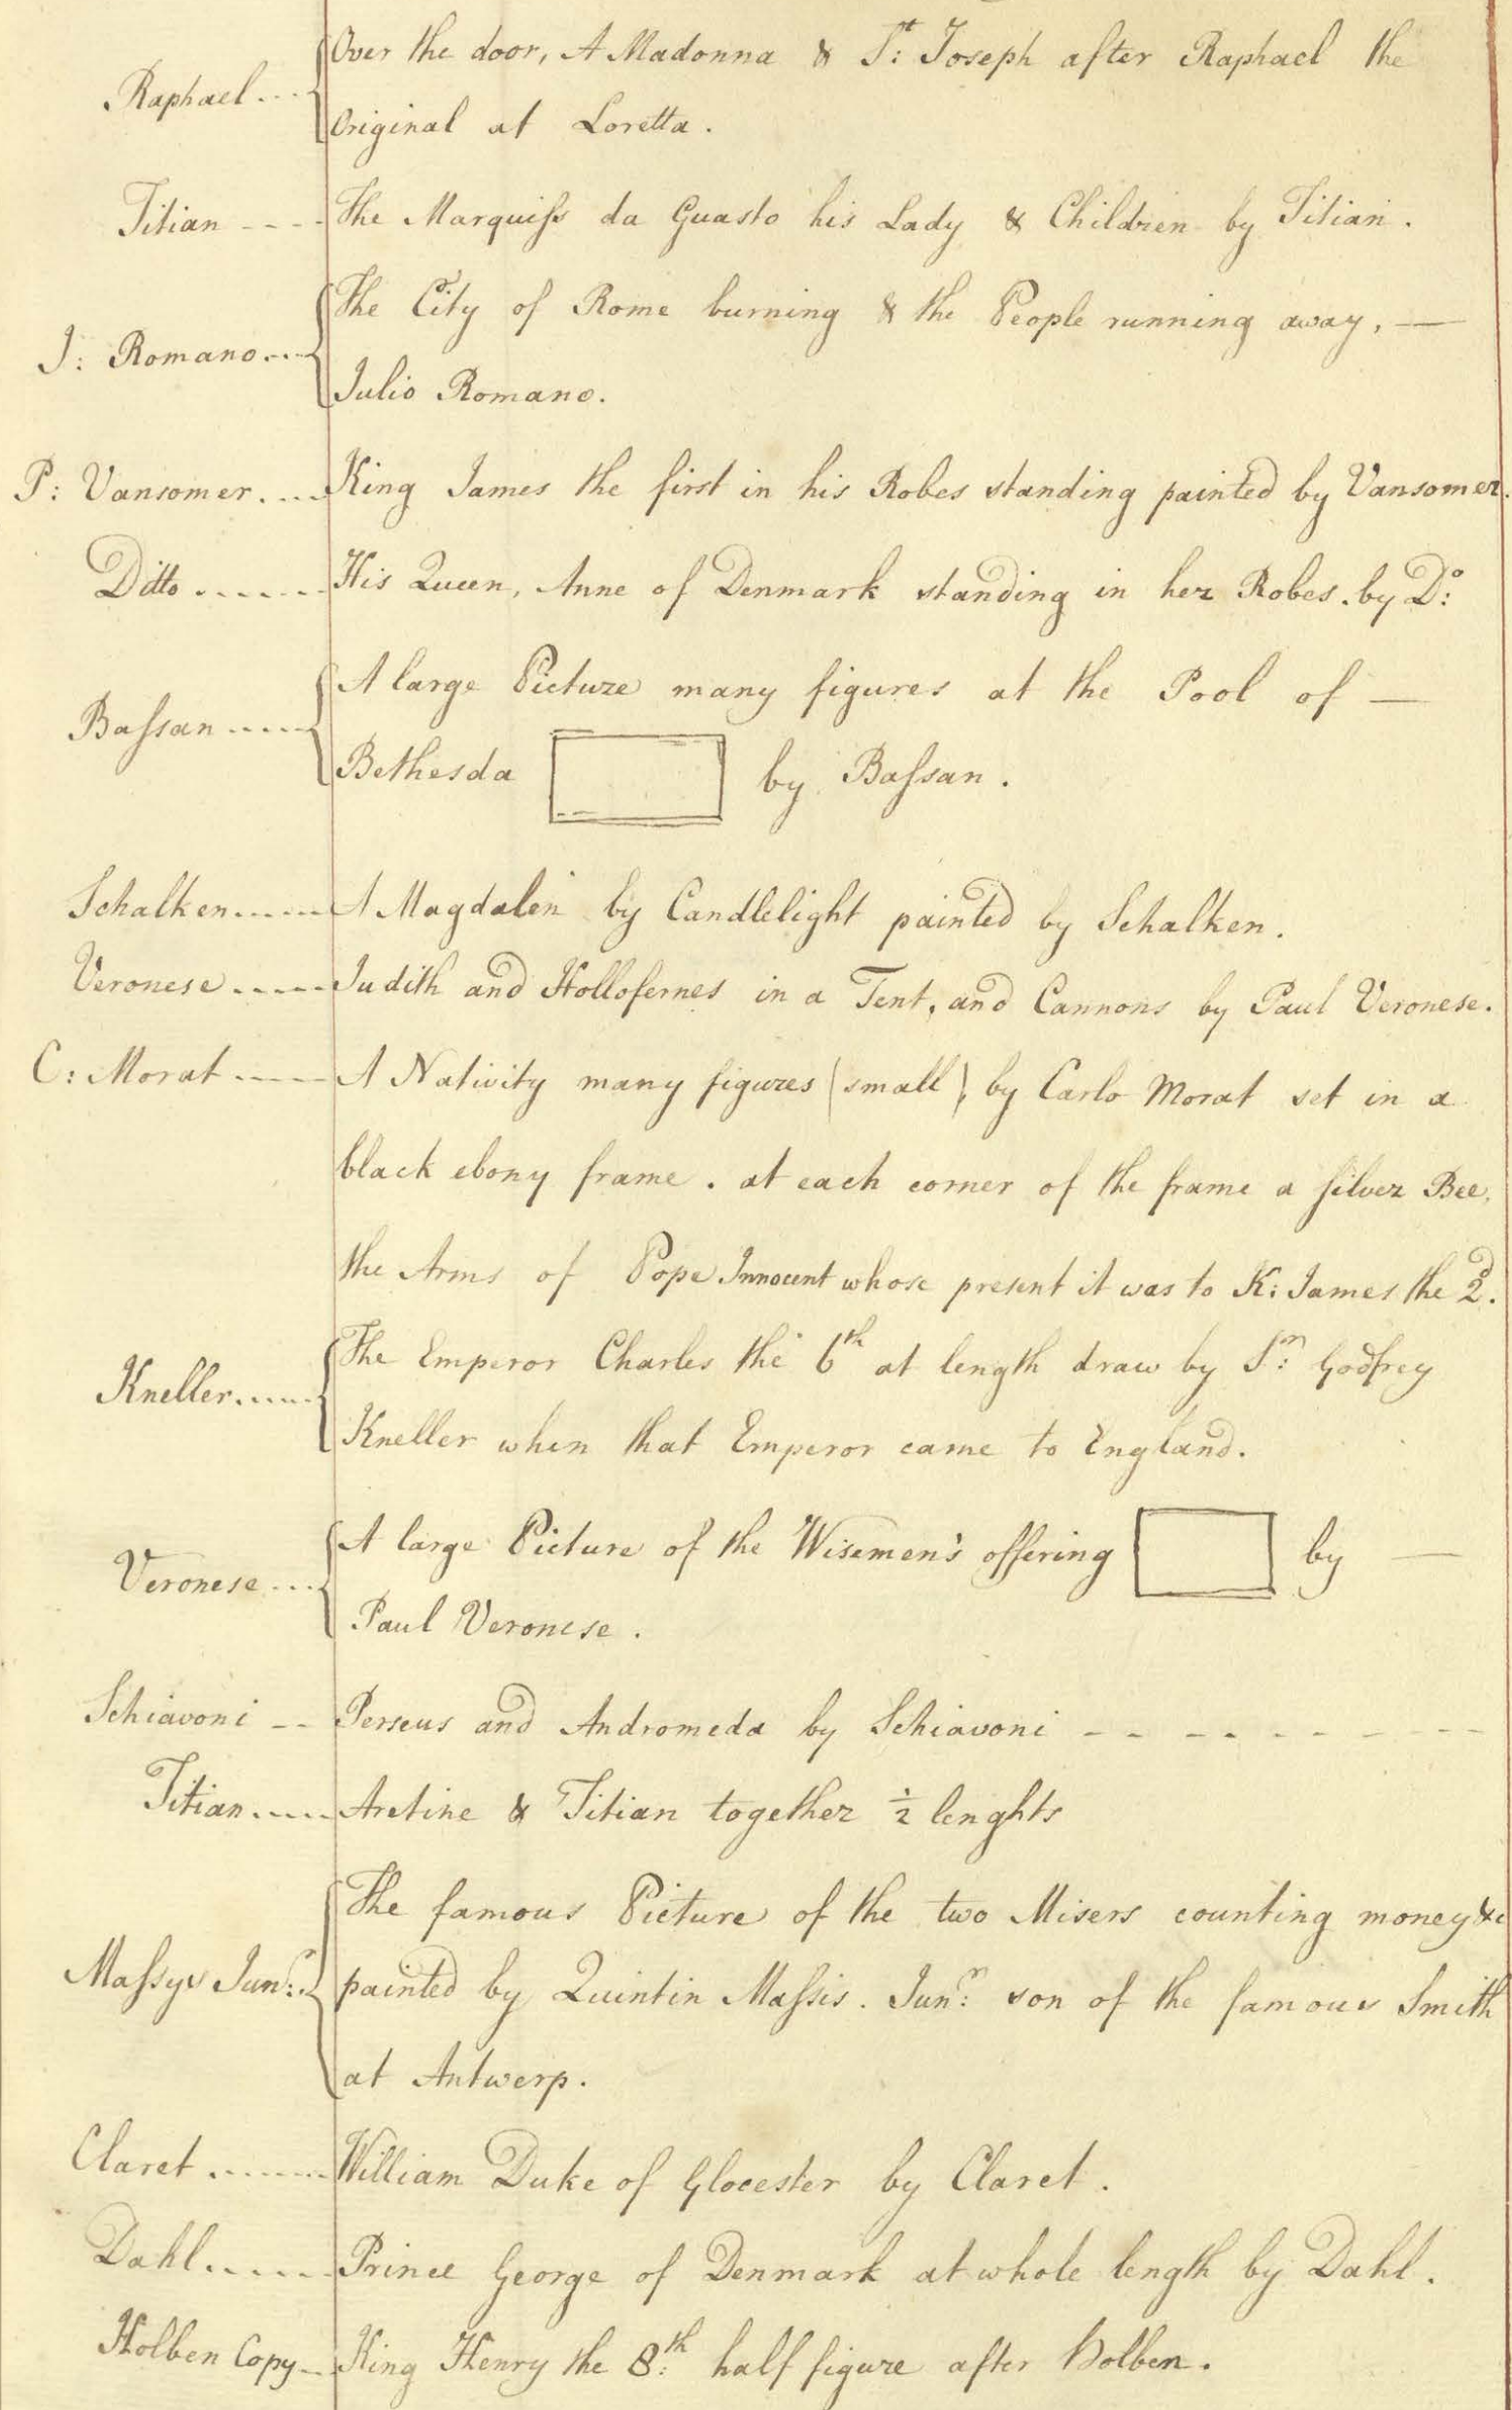 Raphael... Over the door, A Madonna & St: Joseph after Raphael the
Original at Loretta.
Titian ---- The Marquiſs da Guasto his Lady & Children by Titian.
J: Romano.... The City of Rome burning & the People running away, —
Julio Romano.
P: Vansomer.... King James the first in his Robes standing painted by Vansomer.
Ditto ...... His Queen, Anne of Denmark standing in her Robes. by Do:
Baſsan ..... A large Picture many figures at the Pool of —
Bethesda by Baſsan.
Schalken...... A Magdalen by Candlelight painted by Schalken.
Veronese ..... Judith and Hollofernes in a Tent, and Cannons by Paul Veronese.
C: Morat ----- A Nativity many figures (small), by Carlo Morat set in a
black ebony frame. at each corner of the frame a ſilver Bee,
the Arms of Pope Innocent whose present it was to K: James the 2d.
Kneller..... The Emperor Charles the 6th at length draw by Sr: Godfrey
Kneller when that Emperor came to England.
Veronese... A large Picture of the Wisemen's offering by —
Paul Veronese.
Schiavoni -- Perseus and Andromeda by Schiavoni ---------
Titian..... Aretine & Titian together ½ lenghts
The famous Picture of the two Misers counting money &c
Maſsys Junr:. painted by Quintin Maſsis. Junr: son of the famous Smith
at Antwerp.
Claret ....... William Duke of Glocester by Claret.
Dahl...... Prince George of Denmark at whole length by Dahl.
Holben Copy -- King Henry the 8th: half figure after Holben.